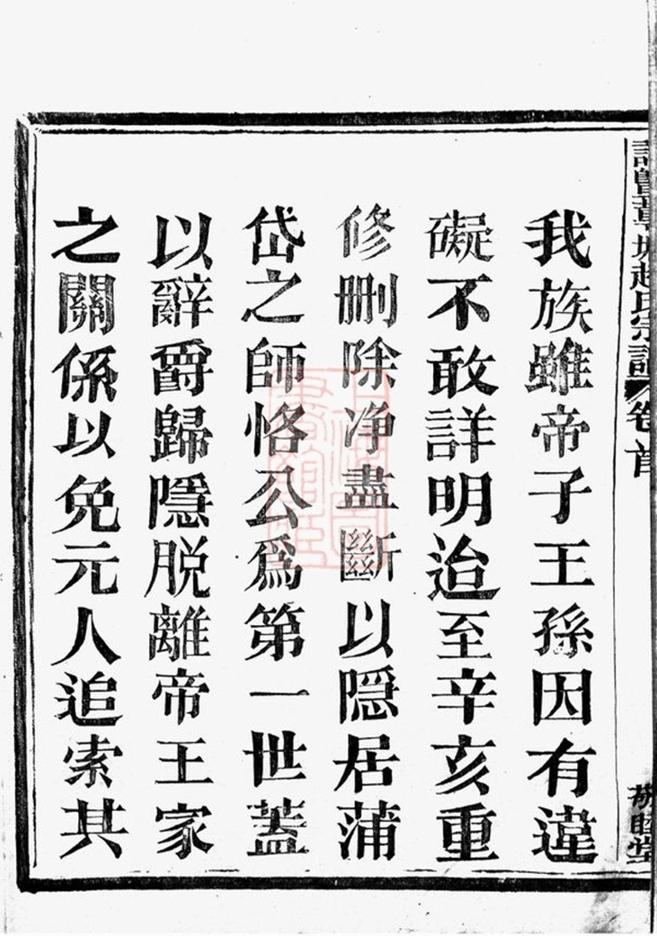 趙氏宗譜 卷首
我族雖帝子王孫因有違
礙不敢詳明迨至辛亥重
修刪除净盡斷以隱居蒲
岱之師恪公爲第一世蓋
以辭爵歸隱脱離帝王家
之關係以免元人追索其